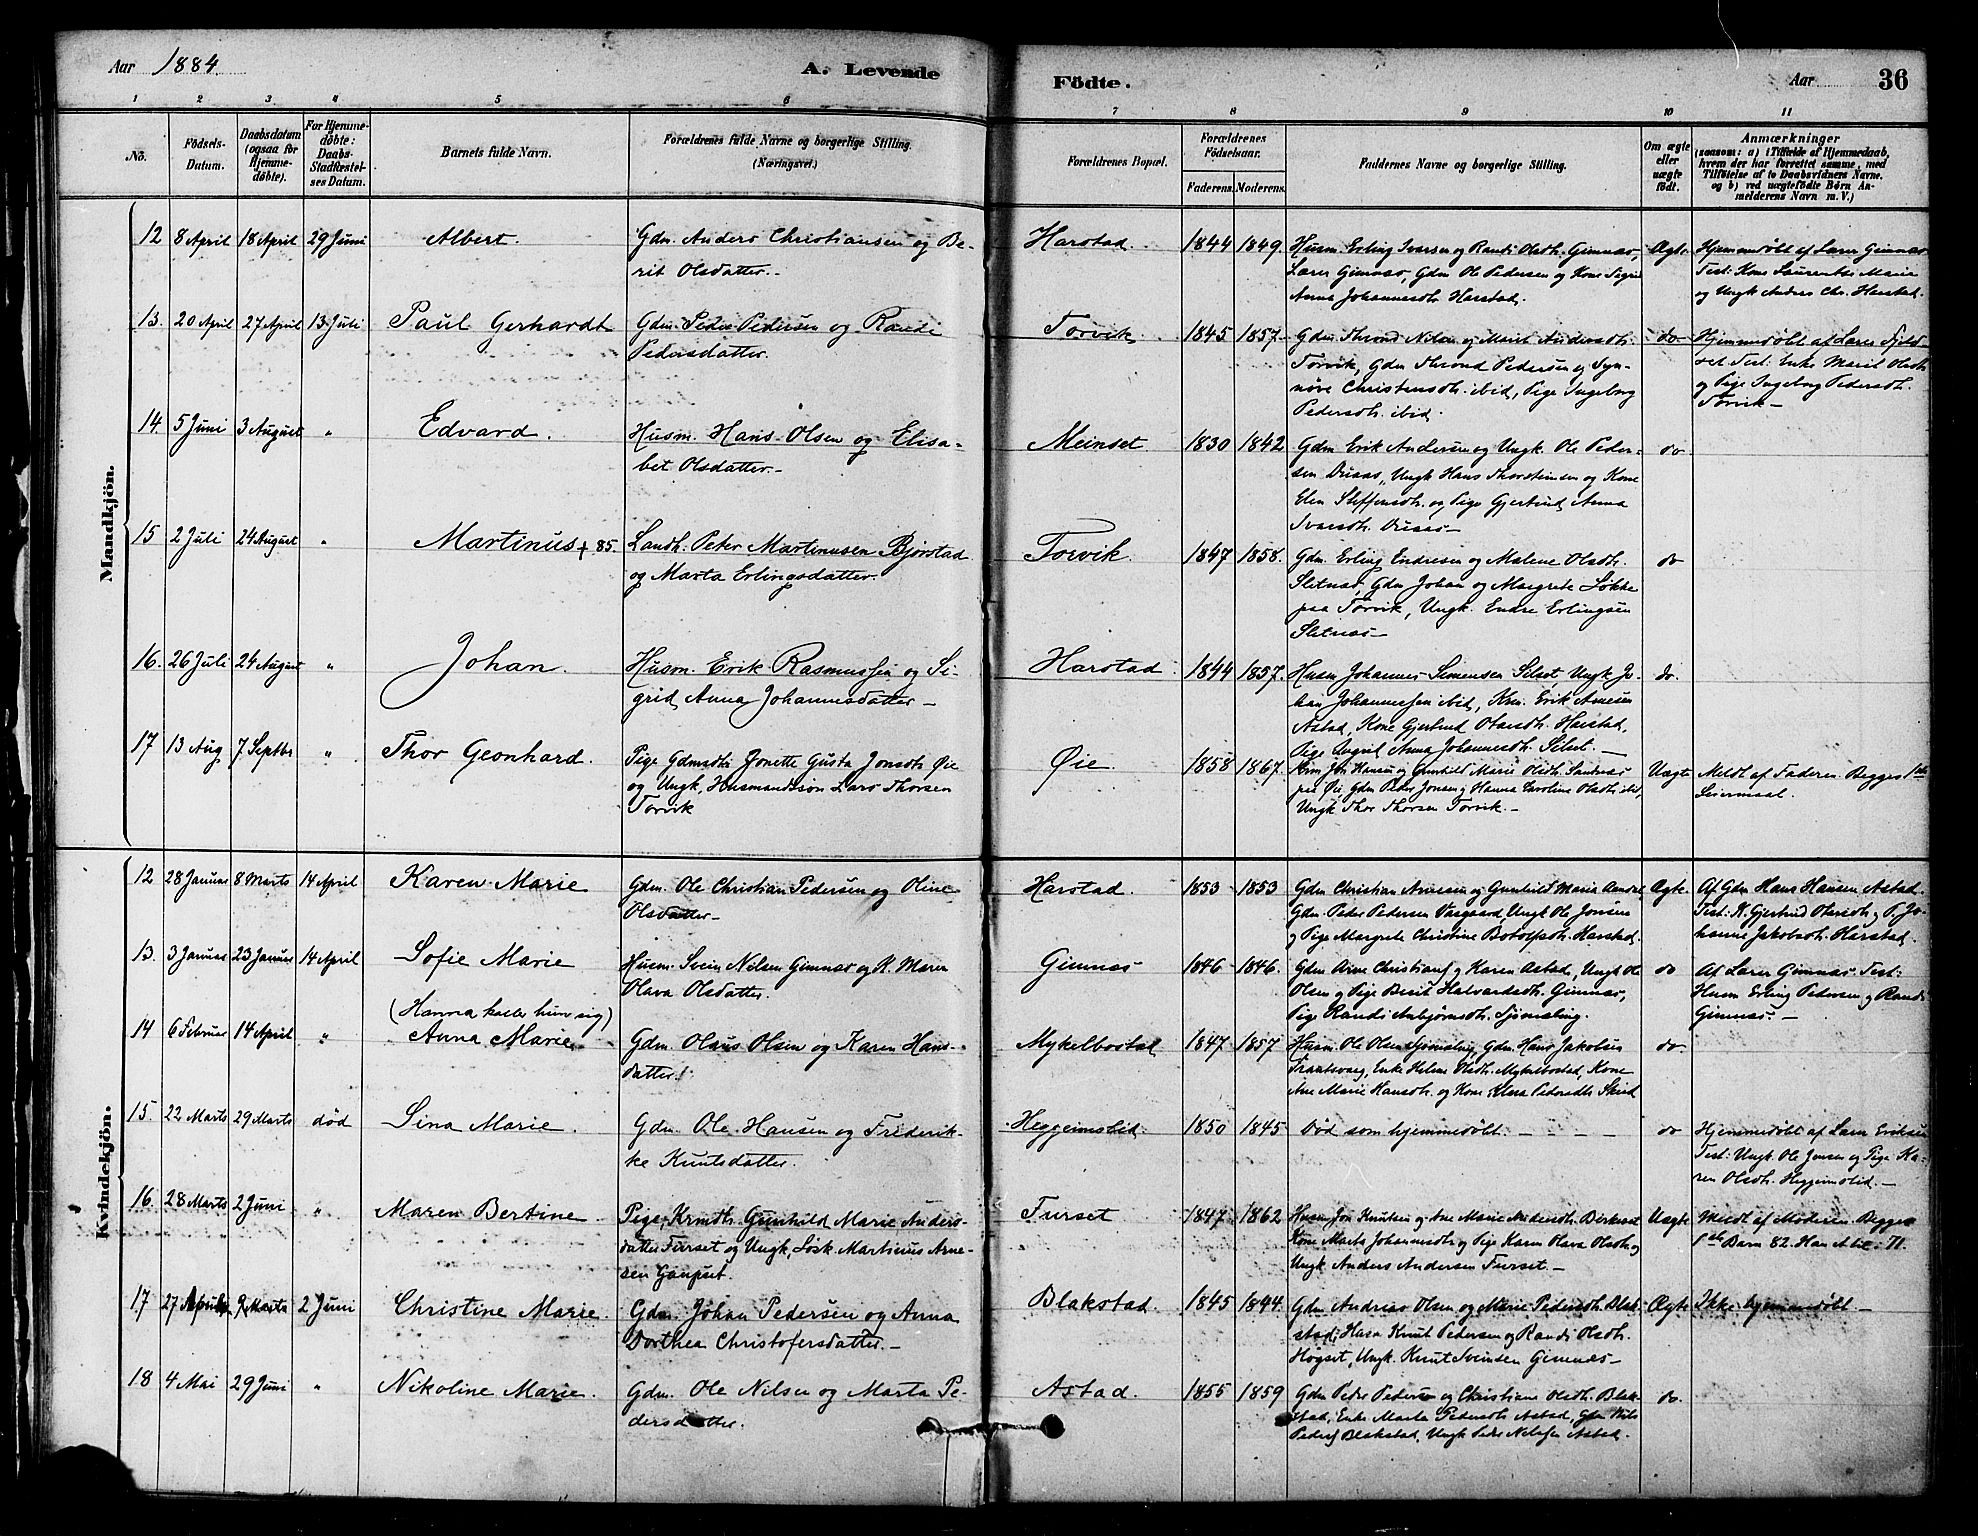 Aar 1884.
A. Levende
Födte.
Aar
36
1 2 3 4 5 6
7 8 9 10 11
No.
Födsels-
Datum.
Daabsdatum
(ogsaa for
Hjemme-
döbte).
For Hjemme-
döbte:
Daabs-
Stadfæstel-
ses Datum.
Barnets fulde Navn.
Forældrenes fulde Navne og borgerlige Stilling.
(Næringsvei.)
Forældrenes Bopæl.
Forældrenes
Födselsaar.
Faderens. Moderens.
Faddernes Navne og borgerlige Stilling.
Om ægte
eller
uægte
födt.
Anmærkninger
(saasom: a) i Tilfælde af Hjemmedaab,
hvem der har forrettet samme, med
Tilföielse af to Daabsvidners Navne,
og b) ved uægtefödte Börn An-
melderens Navn m. V.)
Mandkjön.
12 8 April 18 April 29 Juni Albert. Gdm. Anders Christiansen og Be-
rit Olsdatter.-
Harstad. 1844 1849 Husm. Erling Ivarsen og Randi Olsdtr. Gimnæs,
Lærer Gimnæs, Gdm Ole Pedersen og Kone Sigrid
Anna Johannesdtr. Harstad.
Ægte Hjemmedøbt af Lærer Gimnæs
Test: Kone Laurentse Marie
og Ungk Anders Chr. Harstad.
13. 20 April 27 April 13 Juli Paul Gerhardt Gdm. Peder Pedersen og Randi
Pedersdatter.
Torvik. 1845 1857. Gdm Thrond Nilsen og Marit Andersdtr.
Torvik, Gdm Thrond Pedersen og Syn-
növe Christensdtr. ibid, Pige Ingeborg
Pedersdtr. ibid.
do Hjemmedøbt af Lærer
Test. Enke Marit Olsdtr
og Pige Ingeborg Pedersdtr.
Torvik-
14. 5 Juni 3 August " Edvard. Husm. Hans Olsen og Elisa-
bet Olsdatter.-
Meinset 1830 1842 Gdm Erik Andersen og Ungk. Ole Peder-
sen, Ungk Hans Thorsteinsen og Kone
Elen Steffensdtr. og Pige Gjertrud Anna
Ivarsdtr.
do
15 2 Juli 24 August " Martinus + 85. Landh. Peter Martinusen Bjørstad
og Marta Erlingsdatter.
Torvik. 1847 1858. Gdm. Erling Endresen og Malene Olsdtr.
Sletnæs, Gdm Johan og Margrete Løkke
paa Torvik, Ungk. Endre Erlingsen
Sletnæs-
do
16. 26 Juli 24 August " Johan. Husm. Erik Rasmussen og Si-
grid Anna Johannesdatter-
Harstad 1844 1857. Husm Johannes Simensen Silset, Ungk Jo-
han Johannessen ibid, Krm. Erik Arnesen
Astad, Kone Gjertrud Olavsdtr. Harstad,
Pige Ingrid Anna Johannesdtr. Silset.-
do.
17 13 Aug 7 Septbr " Thor Geonhard. Pige Gdmsdtr. Jonette Gusta Jonsdtr. Øie
og Ungk, Husmandssön Lars Thorsen
Torvik
Øie. 1858 1867. Krm Jon Hansen og Gunhild Marie Olsdtr. Sandnæs
paa Øie, Gdm Peter Jonsen og Hanna Caroline Olsdtr ibid,
Ungk Thor Thorsen Torvik.-
Uægte Meldt af Faderen Begges 1ste
Leiermaal.
Kvindekjön.
12 28 Januar 8 Marts 14 April Karen Marie Gdm. Ole Christian Pedersen og Oline
Olsdatter-
Harstad. 1853 1853 Gdm Christian Arnesen og Gunhild Maria Aandal,
Gdm. Peder Pedersen Vaagaard, Ungk Ole Jonsen
og Pige Margrete Christine Botolfsdtr. Harstad.
Ægte. Af Gdm Hans Hansen Astad.
Test: K. Gjertrud Olavsdtr. og P. Jo-
hanne Jakobsdtr. Harstad.
13. 3 Januar 23 Januar 14 April Sofie Marie Husm. Svein Nilsen Gimnæs og K. Maren
Olava Olsdatter.
Gimnæs 1846 1846. Gdm Arne Christians. og Karen Astad, Ungk Ole
Olsen og Pige Berit Halvardsdtr. Gimnæs,
Pige Randi Anbjørnsdtr. Sjømæling.
do Af Lærer Gimnæs. Test:
Husm Erling Pedersen og Randi
Gimnæs.-
(Hanna kaller hun sig)
14 6 Februar 14 April " Anna Marie. Gdm. Olaus Olsen og Karen Hans-
datter.
Mykelbostad 1847 1857 Husm. Ole Olsen Sjømæling, Gdm. Hans Jakobsen
, Enke Helene Olsdtr. Mykelbostad, Kone
Ane Marie Hansdtr. og Kone Elisa Pedersdtr Skeid
do.
15. 22 Marts 29 Marts død Sina Marie. Gdm. Ole Hansen og Frederik-
ke Knutsdatter.
Heggeimslid. 1850 1845 Død som hjemmedøbt. - - - - do Hjemmedøbt af Lærer Eriksen
Test: Ungk Ole Jonsen og Pige Ka-
ren Olsdtr. Heggeimslid.-
16 28 Marts 2 Juni " Maren Bertine. Pige, Krmdtr. Gunhild Marie Anders-
datter Furset og Ungk. Løsk. Martinus Arne-
sen Gaupset.
Furset 1847 1862 Husm Jon Knutsen og Ane Marie Andersdtr. Birkeset
Kone Marta Johannesdtr. og Pige Karen Olava Olsdtr og
Ungk Anders Andersen Furset.-
Uægte Meldt af Moderen. Begges
1ste Barn 82. Han A til 71.
17 27 2 Juni Christine Marie. Gdm. Johan Pedersen og Anna
Dorthea Christofersdatter.-
Blakstad. 1845 1844. Gdm Andreas Olsen og Marie Pedersdtr. Blak-
stad, Husm Knut Pedersen og Randi Olsdtr.
Høgset, Ungk. Knut Sveinsen Gimnæs-
Ægte Ikke hjemmedøbt-
18 4 Mai 29 Juni " Nikoline Marie. Gdm. Ole Nilsen og Marta Pe-
dersdatter.
Astad. 1855 1859 Gdm Peder Pedersen og Christiane Olsdtr. Blak-
stad, Enke Marta Pedersdtr Astad, Gdm Nils
Peders. Blakstad, Ungk Peder Nilssen Astad.
do.